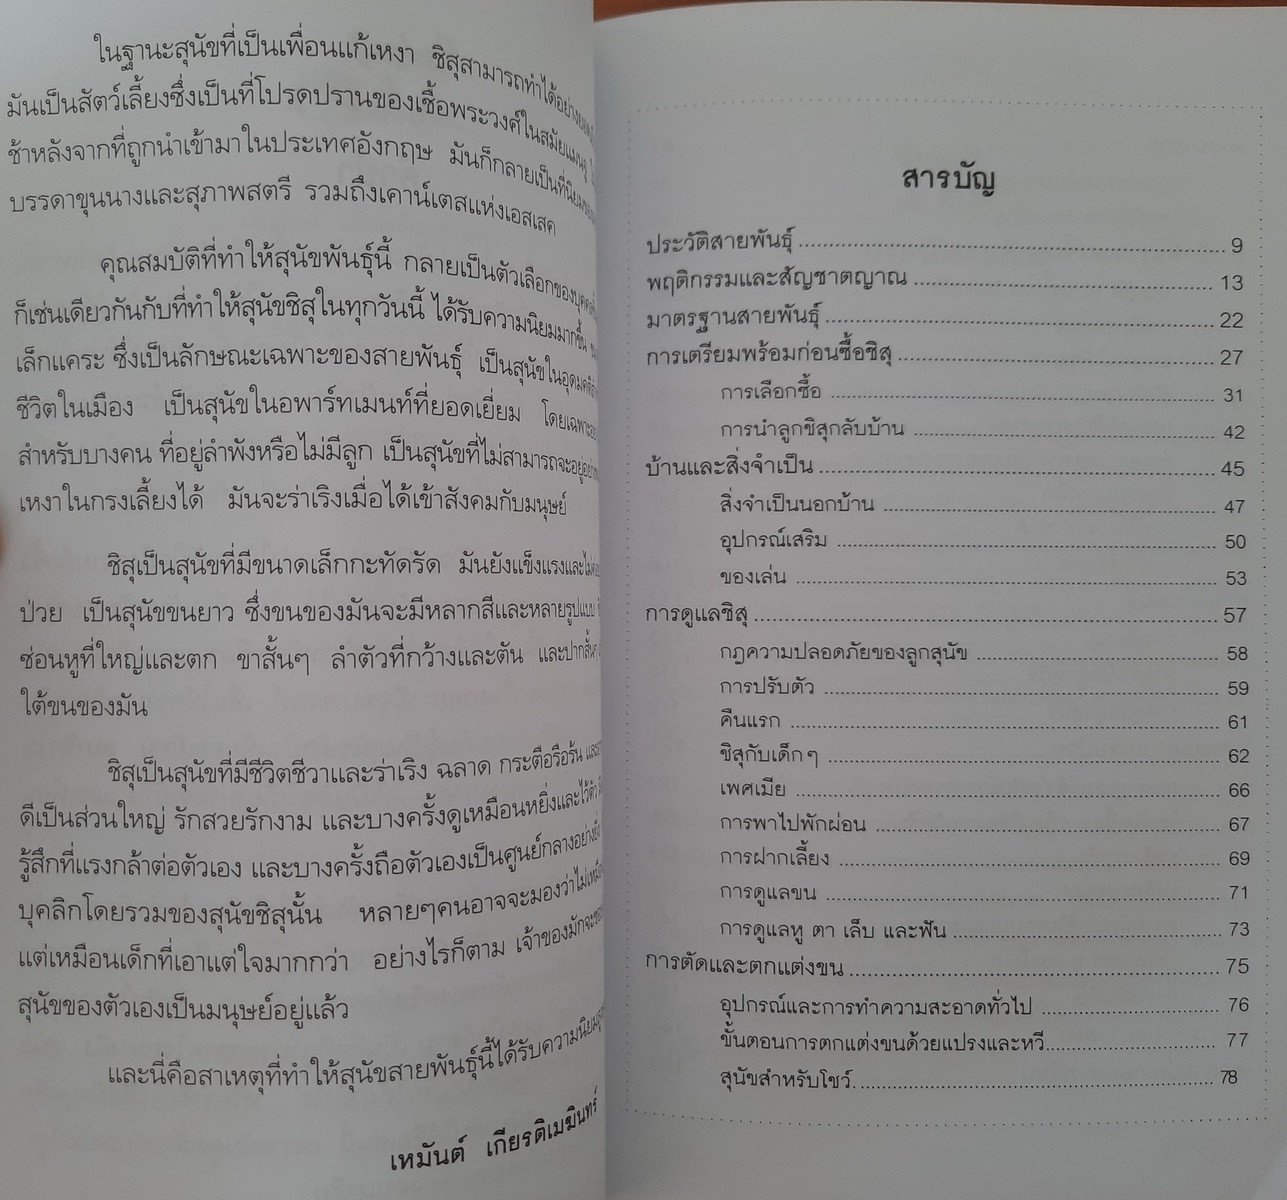 ในฐานะสุนัขที่เป็นเพื่อนแก้เหงา ชิสุสามารถทำได้อย่าง
มันเป็นสัตว์เลี้ยงซึ่งเป็นที่โปรดปรานของเชื้อพระวงศ์ในสมัยแมนจู
ช้าหลังจากที่ถูกนำเข้ามาในประเทศอังกฤษ มันก็กลายเป็นที่นิยม
บรรดาขุนนางและสุภาพสตรี รวมถึงเคาน์เตสแห่งเอสเสค
คุณสมบัติที่ทำให้สุนัขพันธุ์นี้ กลายเป็นตัวเลือกของ
ก็เช่นเดียวกันกับที่ทำให้สุนัขชิสุในทุกวันนี้ ได้รับความนิยมมากขึ้น
เล็กแคระ ซึ่งเป็นลักษณะเฉพาะของสายพันธุ์ เป็นสุนัขในอุดมคติ
ชีวิตในเมือง เป็นสุนัขในอพาร์ทเมนท์ที่ยอดเยี่ยม โดยเฉพาะ
สำหรับบางคน ที่อยู่ลำพังหรือไม่มีลูก เป็นสุนัขที่ไม่สามารถจะอยู่
เหงาในกรงเลี้ยงได้ มันจะร่าเริงเมื่อได้เข้าสังคมกับมนุษย์
ชิสุเป็นสุนัขที่มีขนาดเล็กกะทัดรัด มันยังแข็งแรงและไม่ค่อย
ป่วย เป็นสุนัขขนยาว ซึ่งขนของมันจะมีหลากสีและหลายรูปแบบ
ซ่อนหูที่ใหญ่และตก ขาสั้นๆ ลำตัวที่กว้างและตัน และปากสั้น
ใต้ขนของมัน
ชิสุเป็นสุนัขที่มีชีวิตชีวาและร่าเริง ฉลาด กระตือรือร้น
ดีเป็นส่วนใหญ่ รักสวยรักงาม และบางครั้งดูเหมือนหยิ่งและไว้ตัว
รู้สึกที่แรงกล้าต่อตัวเอง และบางครั้งถือตัวเองเป็นศูนย์กลางอย่างยิ่ง
บุคลิกโดยรวมของสุนัขชิสุนั้น หลายๆคนอาจจะมองว่าไม่เหมือน
แต่เหมือนเด็กที่เอาแต่ใจมากกว่า อย่างไรก็ตาม เจ้าของมักจะ
สุนัขของตัวเองเป็นมนุษย์อยู่แล้ว
และนี่คือสาเหตุที่ทำให้สุนัขสายพันธุ์นี้ได้รับความนิยม
เหมันต์ เกียรติเมฆินทร์
สารบัญ
ประวัติสายพันธุ์ 9
พฤติกรรมและสัญชาตญาณ 13
มาตรฐานสายพันธุ์ 22
การเตรียมพร้อมก่อนซื้อชิสุ 27
การเลือกซื้อ 31
การนำลูกชิสุกลับบ้าน 42
บ้านและสิ่งจำเป็น 45
สิ่งจำเป็นนอกบ้าน 47
อุปกรณ์เสริม 50
ของเล่น 53
การดูแลชิสุ 57
กฎความปลอดภัยของลูกสุนัข 58
การปรับตัว 59
คืนแรก 61
ชิสุกับเด็กๆ 62
เพศเมีย 66
การพาไปพักผ่อน 67
การฝากเลี้ยง 69
การดูแลขน 71
การดูแลหู ตา เล็บ และฟัน 73
การตัดและตกแต่งขน 75
อุปกรณ์และการทำความสะอาดทั่วไป 76
ขั้นตอนการตกแต่งขนด้วยแปรงและหวี 77
สุนัขสำหรับโชว์ 78